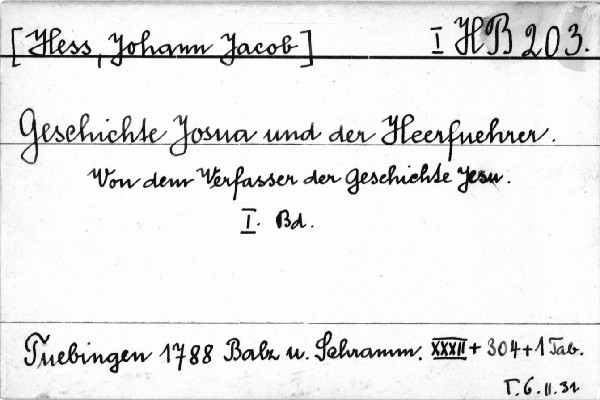 [Hess, Johann Jacob] I HB 203.
Geschichte Josua und der Heerfuehrer.
Von dem Verfasser der Geschichte Jesu.
I. Bd.
Tuebingen 1788 Balz u. Schramm. XXXII + 304 + 1 Tab.
T. 6. II. 31